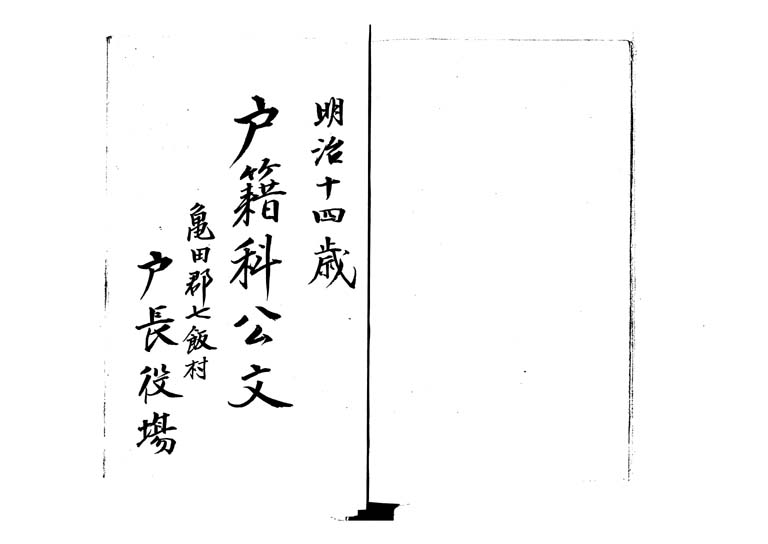 明治十四歳
戸籍科公文
亀田郡七飯村
戸長役場